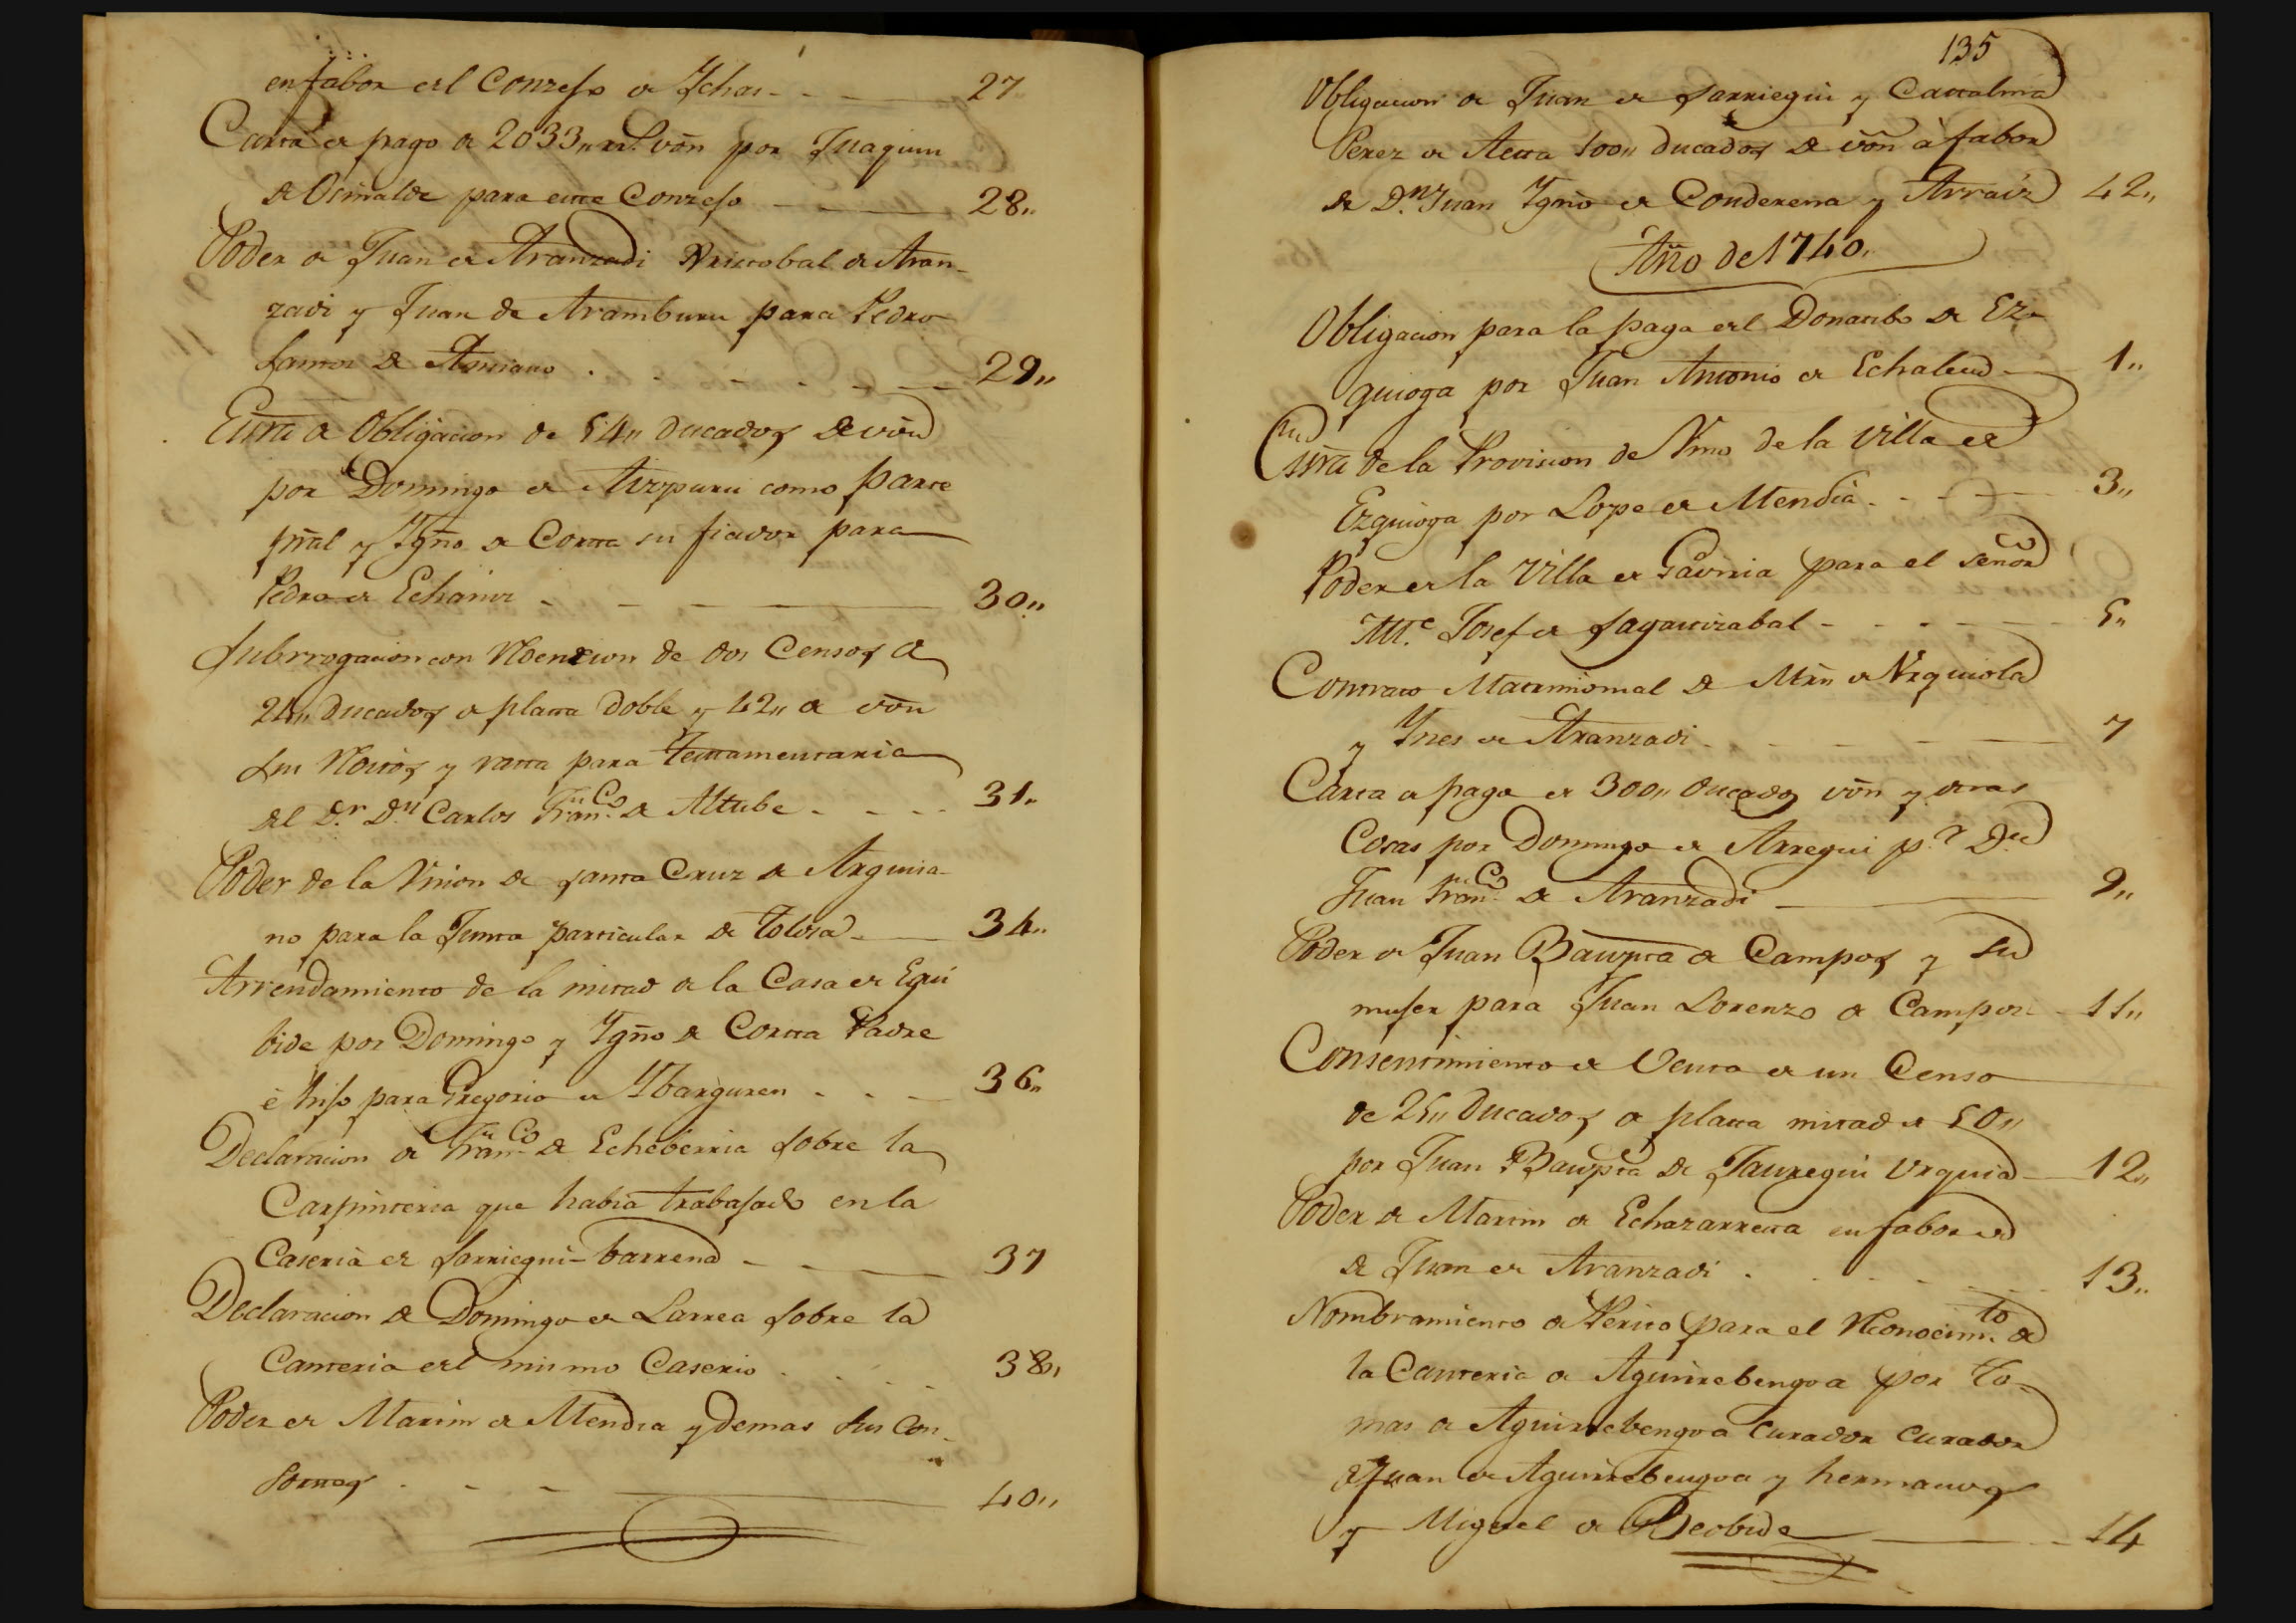 en fabor del Conzejo de Ichas 27
Carta de pago de 2033,, rs. von por Juaquin
de Oсinalde para este Conzejo 28,,
Poder de Juan de Aranzadi Xristobal de Aran-
zadi y Juan de Aramburu para Pedro
Santos de Amiano 29,,
Esrra de Obligacion de 54,, ducados de von
por Domingo de Aizpuru como parte
prãl y Ygño de Corta su fiador para
Pedro de Echaniz 30,,
Subrrogacion con Redencion de dos Censos de
24,, ducados de platta doble y 42,, de von
sus Reditos y ratta para testtamentaria
del Dr. Dn. Carlos Franco. de Altube 31,,
Poder de la Union de Santa Cruz de Arguisa-
no para la Junta particular de Tolosa 34,,
Arrendamiento de la mitad de la Casa de Egui
bide por Domingo y Ygño de Cortta Padre
è hijo para Gregorio de Ybarguren 36,,
Declaracion de Franco. de Echeberria sobre la
Carpinteria que habia trabajado en la
Caseria de Sarriegui-barrena 37
Declaracion de Domingo de Larrea sobre la
Canteria del mismo Caserio 38,,
Poder de Martin de Mendia y demas sus Con-
sortes 40,,
135
Obligacion de Juan de Sarriegui y Cattalina
Perez de 100,, ducados de von à fabor
de Dn. Juan Ygño de Conderena y Arraiz 42,,
Año de 1740,,
Obligacion para la paga del Donatibo de Ez-
quioga por Juan Antonio de Echalecu 1,,
Esrra de la Provision de Vino de la Villa de
Ezquioga por Lope de Mendia 3,,
Poder de la Villa de Gaviria para el señor
Me. Josef de Sagastizabal 5,,
Contrato Matrimonial de Mrn de Urquiola
y Ynes de Aranzadi 7
Carta de pago de 300,, ducados von y otras
Cosas por Domingo de Arregui pa. Dn
Juan Franco. de Aranzadi 9,,
Poder de Juan Baupta de Campos y su
mujer para Juan Lorenzo de Campos 11,,
Consentimiento de Venta de un Censo
de 25,, ducados de platta mitad de 50,,
por Juan Baupta de Jauregui Urquia 12,,
Poder de Martin de Echazarreta en fabor de
de Juan de Aranzadi 13,,
Nombramiento de Perito para el Reconocimto. de
la Canteria de Aguirrebengoa por To-
mas de Aguirrebengoa Curador Curador
de Juan de Aguirrebengoa y hermanos
y Miguel de Reobide 14